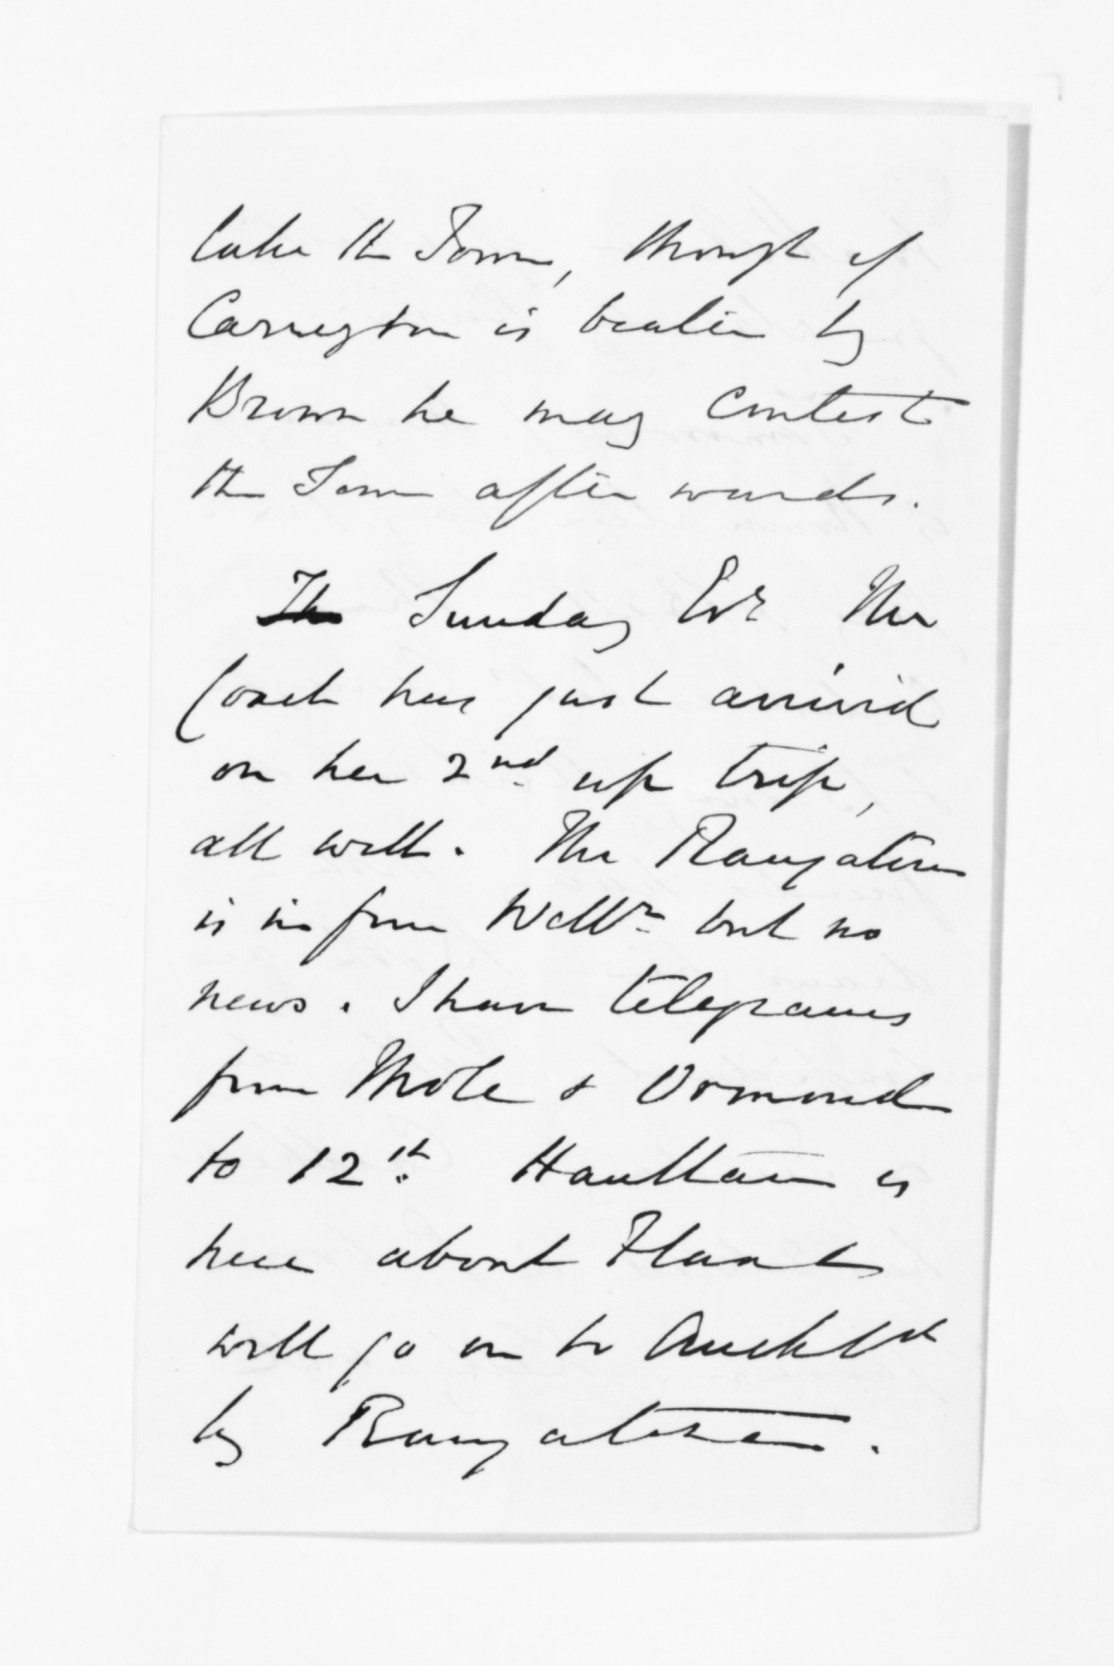 take the Town, though if
Carrington is beaten by
Brown he may contest
the Town after wards.
The Sunday Evg The
Coach has just arrived
on her 2nd up trip,
all well. The Rangatira
is in from Welln but no
news. I have telegrams
from Thole & Ormond
to 12th. Haultain is
here about Flax &
will go on to Auckld
by Rangatira.